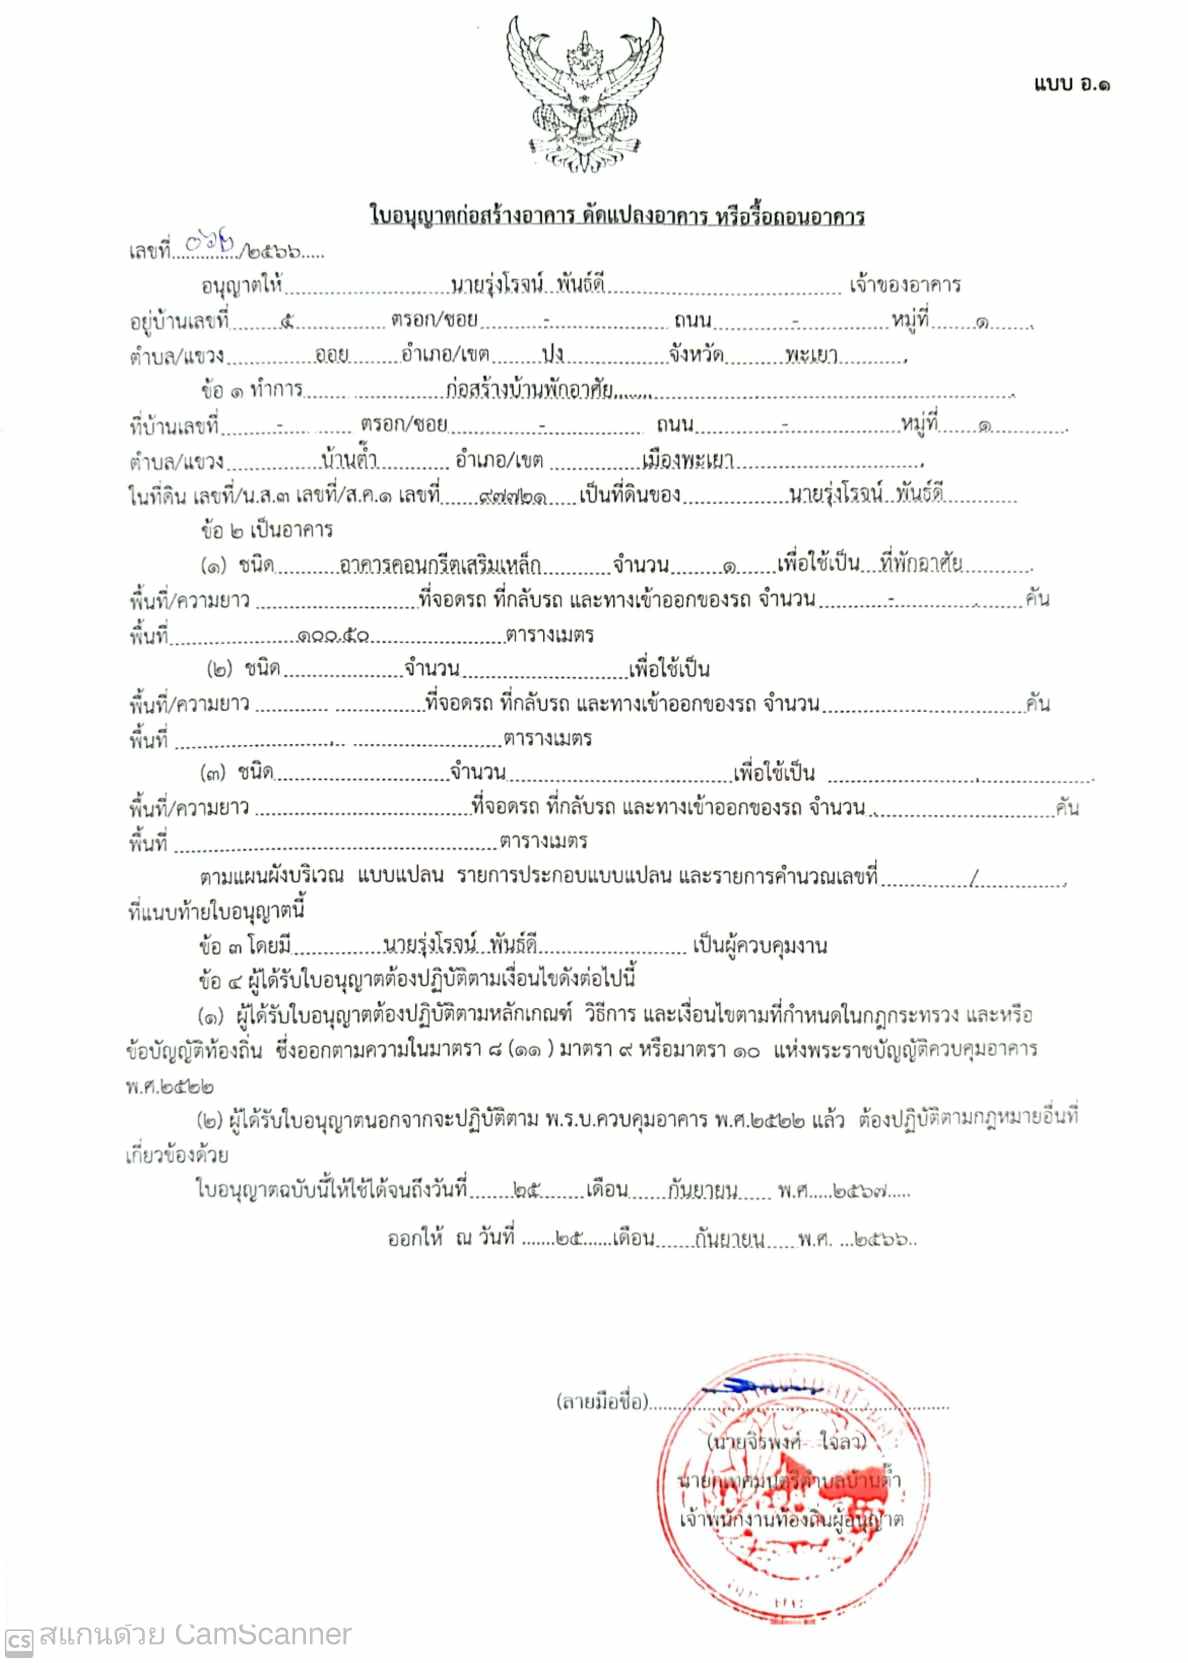 แบบ อ.๑
ใบอนุญาตก่อสร้างอาคาร ดัดแปลงอาคาร หรือรื้อถอนอาคาร
เลขที่...๐๖๒.../๒๕๖๖.....
อนุญาตให้..........นายรุ่งโรจน์ พันธ์ดี.......... เจ้าของอาคาร
อยู่บ้านเลขที่.......๕....... ตรอก/ซอย.......-....... ถนน.......-....... หมู่ที่.....๑.....
ตำบล/แขวง.......ออย....... อำเภอ/เขต.......ปง....... จังหวัด.......พะเยา.......
ข้อ ๑ ทำการ..........ก่อสร้างบ้านพักอาศัย..........
ที่บ้านเลขที่.......-....... ตรอก/ซอย.......-....... ถนน.......-....... หมู่ที่.....๑.....
ตำบล/แขวง..........บ้านต๊ำ.......... อำเภอ/เขต ..........เมืองพะเยา..........
ในที่ดิน เลขที่/น.ส.๓ เลขที่/ส.ค.๑ เลขที่.....๙๗๗๒๑.....เป็นที่ดินของ..........นายรุ่งโรจน์ พันธ์ดี..........
ข้อ ๒ เป็นอาคาร
(๑) ชนิด.......อาคารคอนกรีตเสริมเหล็ก.......จำนวน.......๑.....เพื่อใช้เป็น...ที่พักอาศัย..........
พื้นที่/ความยาว ....................ที่จอดรถ ที่กลับรถ และทางเข้าออกของรถ จำนวน..........-..........คัน
พื้นที่...............๑๐๐.๕๐...............ตารางเมตร
(๒) ชนิด....................จำนวน....................เพื่อใช้เป็น
พื้นที่/ความยาว ....................ที่จอดรถ ที่กลับรถ และทางเข้าออกของรถ จำนวน....................คัน
พื้นที่ ..............................ตารางเมตร
(๓) ชนิด....................จำนวน....................เพื่อใช้เป็น ....................
พื้นที่/ความยาว ....................ที่จอดรถ ที่กลับรถ และทางเข้าออกของรถ จำนวน ....................คัน
พื้นที่ ..............................ตารางเมตร
ตามแผนผังบริเวณ แบบแปลน รายการประกอบแบบแปลน และรายการคำนวณเลขที่........../..........
ที่แนบท้ายใบอนุญาตนี้
ข้อ ๓ โดยมี..........นายรุ่งโรจน์ พันธ์ดี.......... เป็นผู้ควบคุมงาน
ข้อ ๔ ผู้ได้รับใบอนุญาตต้องปฏิบัติตามเงื่อนไขดังต่อไปนี้
(๑) ผู้ได้รับใบอนุญาตต้องปฏิบัติตามหลักเกณฑ์ วิธีการ และเงื่อนไขตามที่กำหนดในกฎกระทรวง และหรือ
ข้อบัญญัติท้องถิ่น ซึ่งออกตามความในมาตรา ๘ (๑๑ ) มาตรา ๙ หรือมาตรา ๑๐ แห่งพระราชบัญญัติควบคุมอาคาร
พ.ศ.๒๕๒๒
(๒) ผู้ได้รับใบอนุญาตนอกจากจะปฏิบัติตาม พ.ร.บ.ควบคุมอาคาร พ.ศ.๒๕๒๒ แล้ว ต้องปฏิบัติตามกฎหมายอื่นที่
เกี่ยวข้องด้วย
ใบอนุญาตฉบับนี้ให้ใช้ได้จนถึงวันที่.......๒๕.......เดือน......กันยายน...... พ.ศ.....๒๕๖๗.....
ออกให้ ณ วันที่ .......๒๕......เดือน.......กันยายน..... พ.ศ. ...๒๕๖๖..
(ลายมือชื่อ)..............................
(นายจิรพงศ์ ใจลา)
นายกเทศมนตรีตำบลบ้านต๊ำ
เจ้าพนักงานท้องถิ่นผู้อนุญาต
CS สแกนด้วย CamScanner